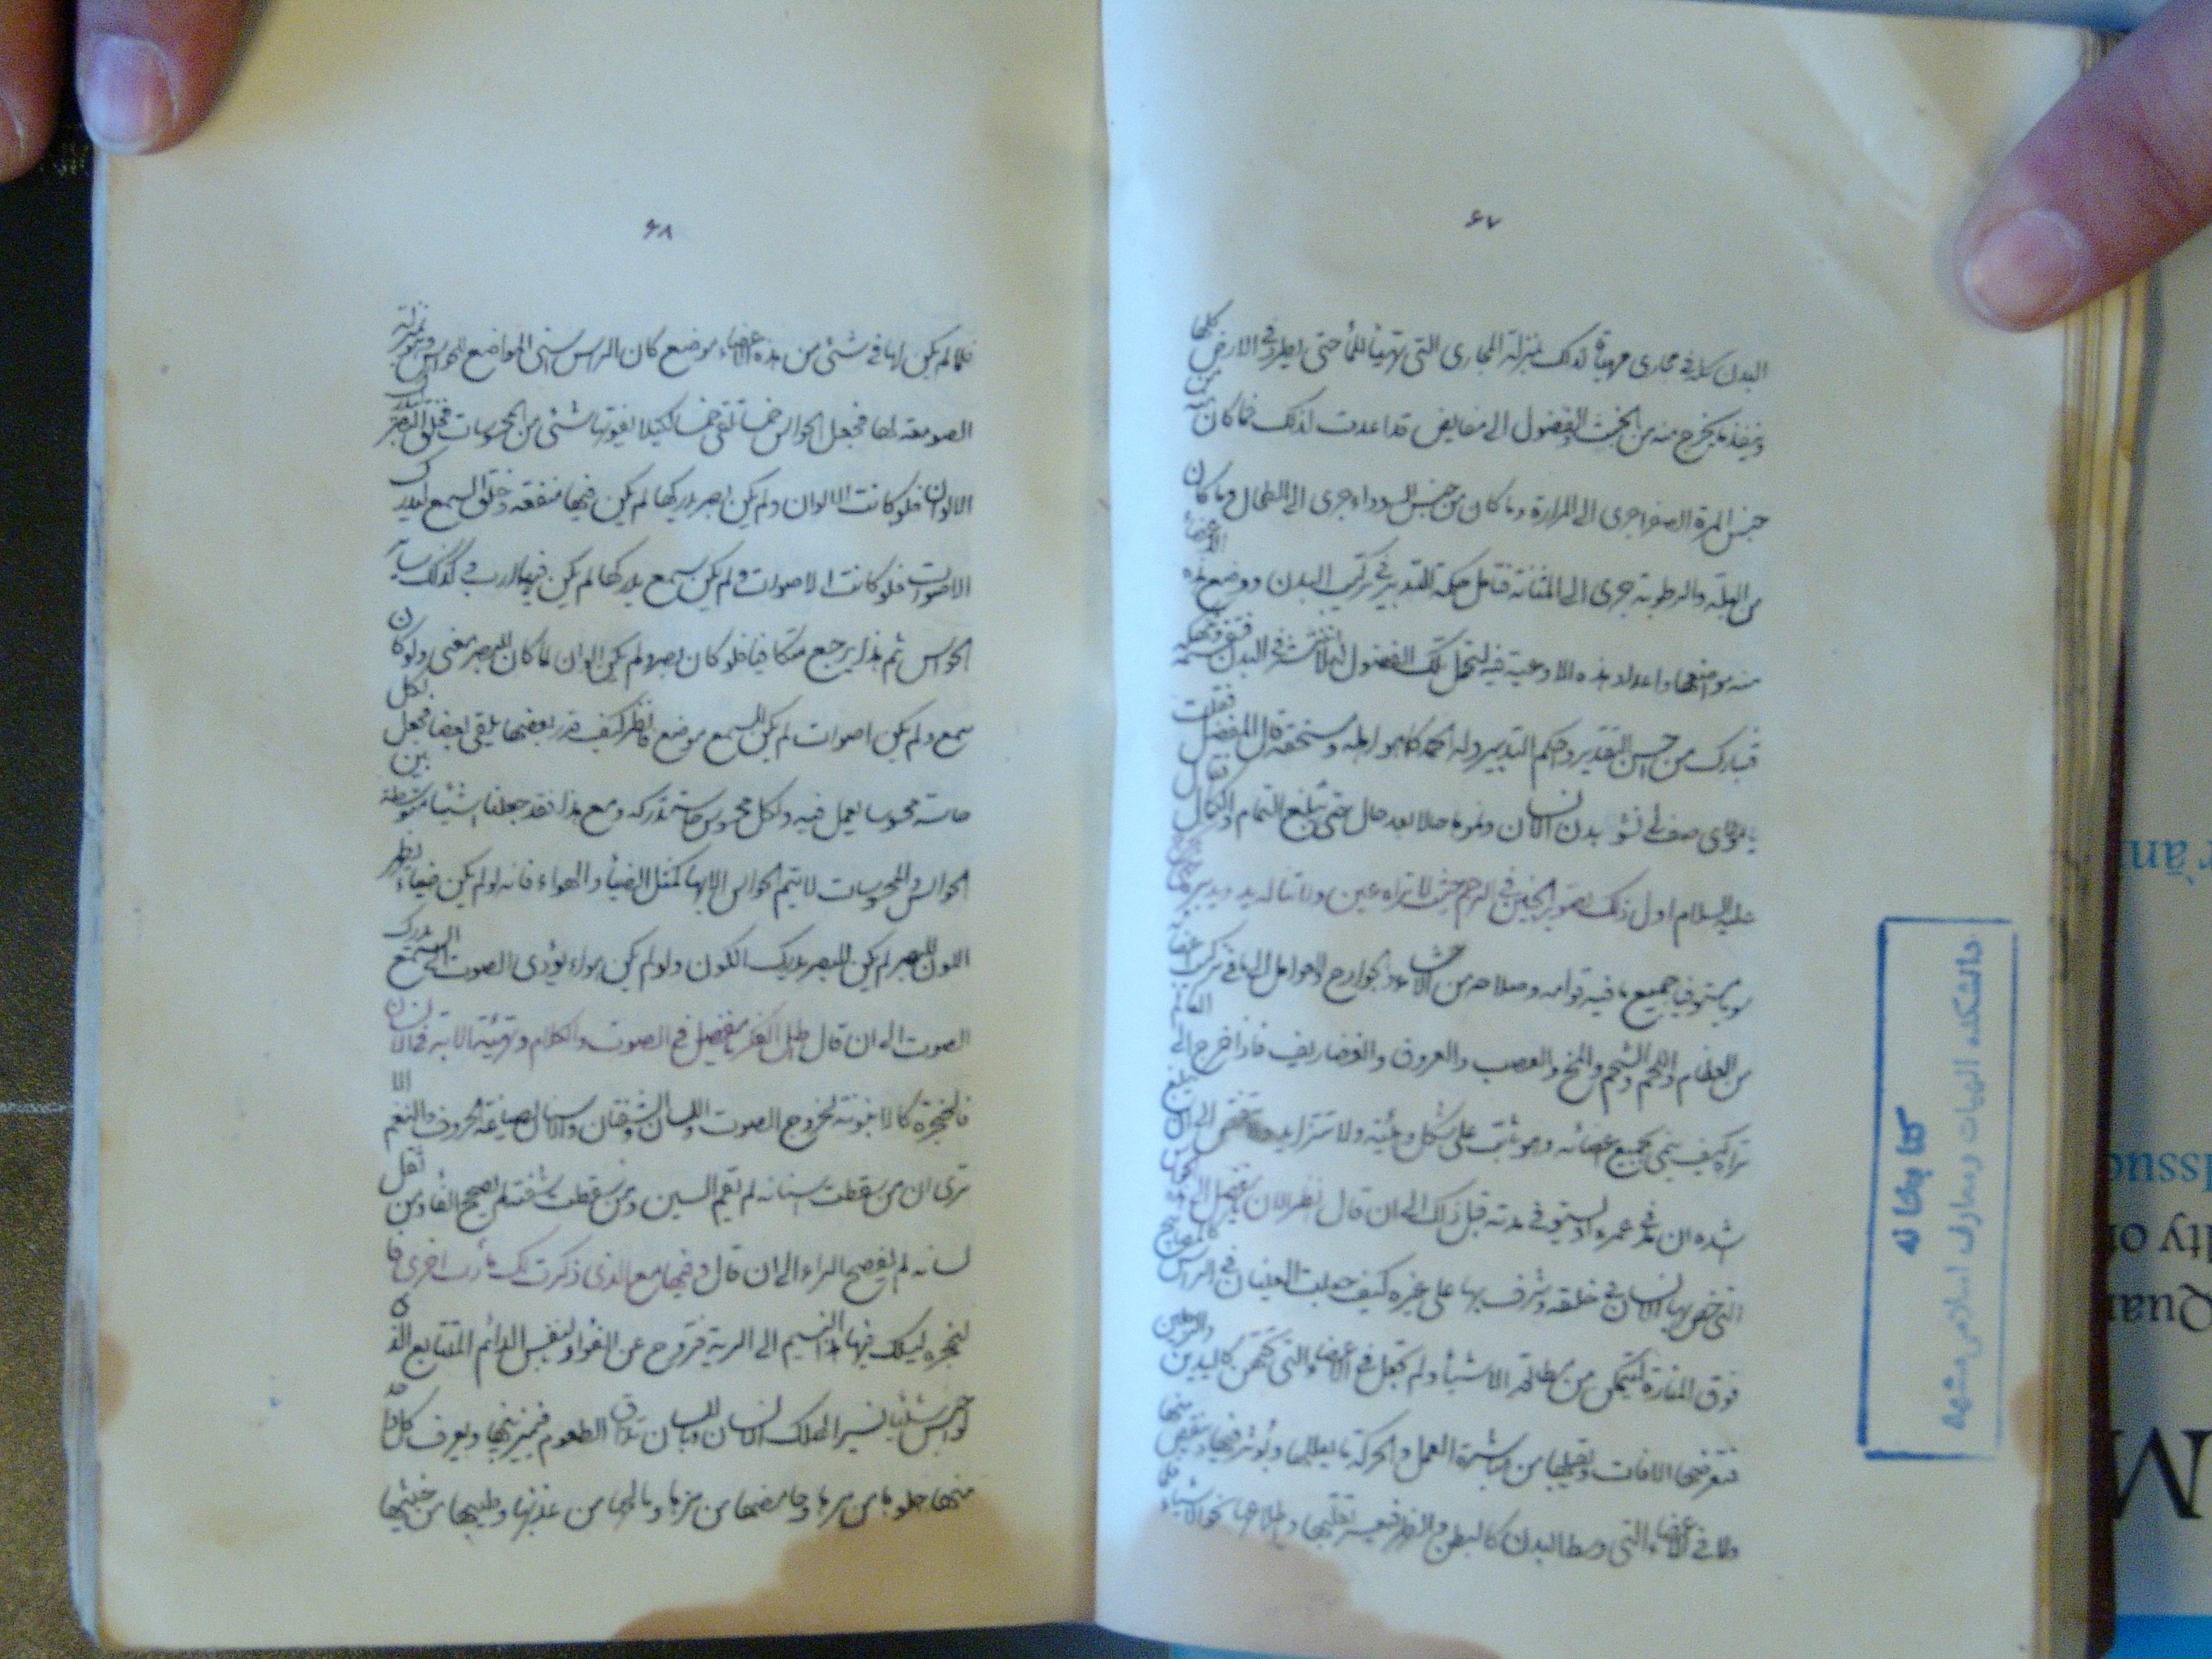 ۶۷
البدن كله في مجارى مهيأة لذلك بمنزلة المجارى التى تهيأ للمأ حتى يطرد في الارض كلها
وينفذ ما يخرج منه من الخبث والفضول الى مفايض قد اعدت لذلك فما كان من
جنس المرة الصفرا جرى الى المرارة وما كان من جنس السوداء جرى الى الطحال وما كان
من البلة والرطوبة جرى الى المثانة فتامل حكمة التدبير فى تركيب البدن ووضع هذه الاعضاء
منه مواضعها واعداد هذه الاوعية فيه لتحمل تلك الفضول لئلا تنتشر فى البدن فتسقمه وتنهكه
فتبارك من احسن التقدير واحكم التدبير وله الحمد كما هو اهله ومستحقه قال المفضل فقلت
صف لى نشو بدن الانسان ونموه حالا بعد حال حتى يبلغ التمام والكمال فقال
عليه السلام اول ذلك تصوير الجنين فى الرحم حيث لا تراه عين ولا تناله يد ويدبره حتى
يخرج سويا مستوفيا جميع ما فيه قوامه وصلاحه من الاحشاء والجوارح والعوامل الى ما فى تركيب اعضائه
من العظام واللحم والشحم والمخ والعصب والعروق والغضاريف فاذا خرج الى العالم
تراه كيف ينمى بجميع اعضائه وهو ثابت على شكل وهيئة ولا تتزايد ولا تنقص الى ان يبلغ
اشده ان مد فى عمره او يستوفى مدته قبل ذلك الى ان قال انظر الان يا مفضل الى هذه الحواس
التى خص بها الانسان فى خلقه وشرف بها على غيره كيف جعلت العينان فى الراس كالمصابيح
فوق المنارة ليتمكن من مطالعة الاشياء ولم تجعل فى الاعضاء التى تحتهن كاليدين والرجلين
فتعرضها الافات وتصيبها من مباشرة العمل والحركة ما يعللها ويؤثر فيها وينقص منها
ولا فى الاعضاء التى وسط البدن كالبطن والظهر فيعسر تقلبها واطلاعها نحو الاشياء
۶۸
فلما لم يكن لها فى شئى من هذه الاعضاء موضع كان الراس اسنى المواضع للحواس وهو بمنزلة
الصومعة لها فجعل الحواس خمسا تلقى خمسا لكيلا يفوتها شئى من المحسوسات فخلق البصر ليدرك
الالوان فلو كانت الالوان ولم يكن بصر يدركها لم يكن فيها منفعة وخلق السمع ليدرك
الاصوات فلو كانت الاصوات ولم يكن سمع يدركها لم يكن فيها ارب وكذلك ساير
الحواس ثم هذا يرجع متكافيا فلو كان بصر ولم يكن الوان لما كان للبصر معنى ولو كان
سمع ولم يكن اصوات لم يكن للسمع موضع فانظر كيف قدر بعضها يلقى بعضا فجعل لكل
حاسة محسوسا يعمل فيه ولكل محسوس حاسة تدركه ومع هذا فقد جعلت اشياء متوسطة بين
الحواس والمحسوسات لا يتم الحواس الا بها كمثل الضياء والهواء فانه لو لم يكن ضياء يظهر
اللون للبصر لم يكن البصر يدرك اللون ولو لم يكن هواء يؤدى الصوت الى السمع لم يكن السمع يدرك
الصوت الى ان قال اطل الفكر يا مفضل فى الصوت والكلام وتهيئة الاته فى الانسان
فالحنجرة كالانبوبة لخروج الصوت واللسان والشفتان والاسنان لصياغة الحروف والنغم الا
ترى ان من سقطت اسنانه لم يقم السين ومن سقطت شفته لم يصحح الفاء ومن ثقل
لسانه لم يفصح الراء الى ان قال وفيها مع الذى ذكرت لك مآرب اخرى فا
لحنجرة ليسلك فيها هذا النسيم الى الرية فتروح عن الفواد بالنفس الدائم المتتابع الذى
لو احتبس شيئا يسيرا لهلك الانسان وباللسان تذاق الطعوم فيميز بينها ويعرف كل واحد
منها حلوها من مرها وحامضها من مزها ومالحها من عذبها وطيبها من خبيثها
كتابخانه
دانشكده الهيات ومعارف اسلامى مشهد